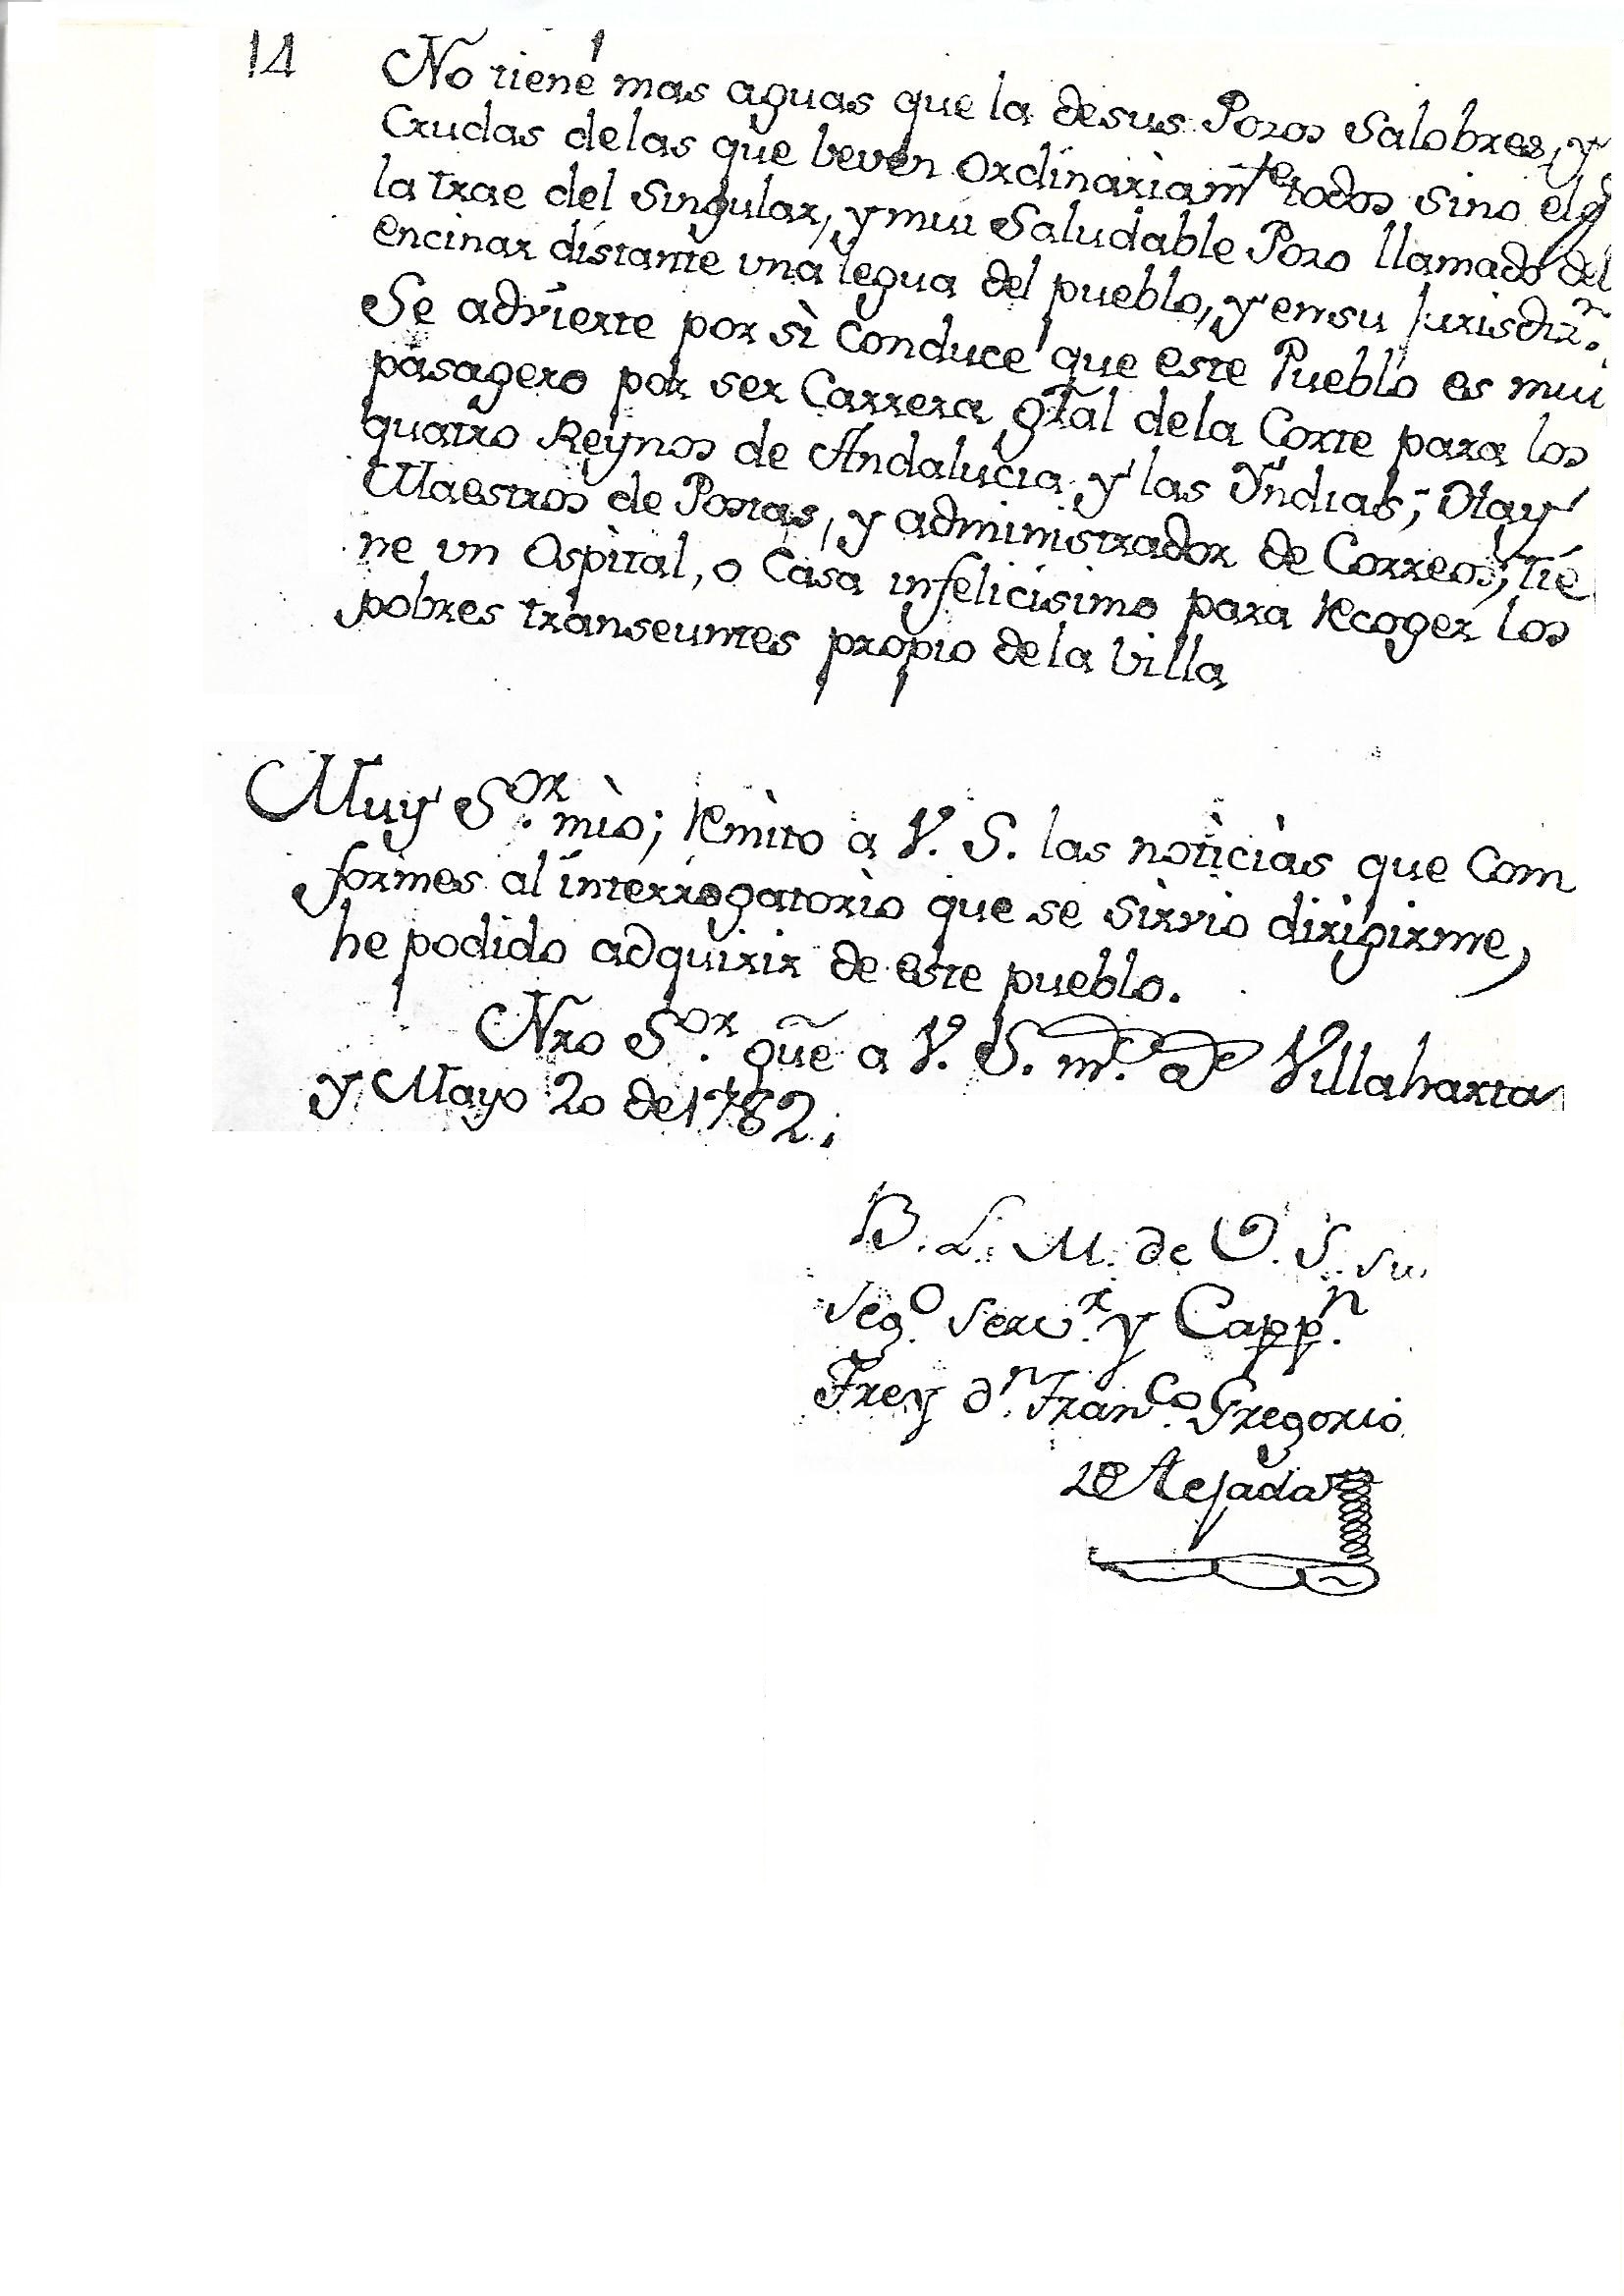 14 No tiene mas aguas que la desus Pozos Salobres, y
Crudas delas que beven Ordinariam.te todos sino el q
la trae del Singular, y mui Saludable Pozo llamado del
encinar distante una legua del pueblo, y emsu Jurisdiz.n
Se advierte por sì Conduce que este Pueblo es mui
pasagero por ser Carrera gral dela Corte para los
quatro Reynos de Andalucia, y las Yndias; Hay
Maestros de Postas, y administrador de Correos; tie
ne un Ospital, o Casa infelicisimo para Recoger los
pobres transeuntes propio dela Villa
Muy S.or mìo; Remìto a V. S. las notìcìas que Com
formes al interrogatorìo que se sirvio dirigirme,
he podido adquirir de este pueblo.
Nro S.or gũe a V. S. m.s a.s Villaharta
y Mayo 20 de 1782.
B. L. M. de V. S. su
seg.o serv.r y Capp.n
Frey d.n Fran.co Gregorio
de Atejada